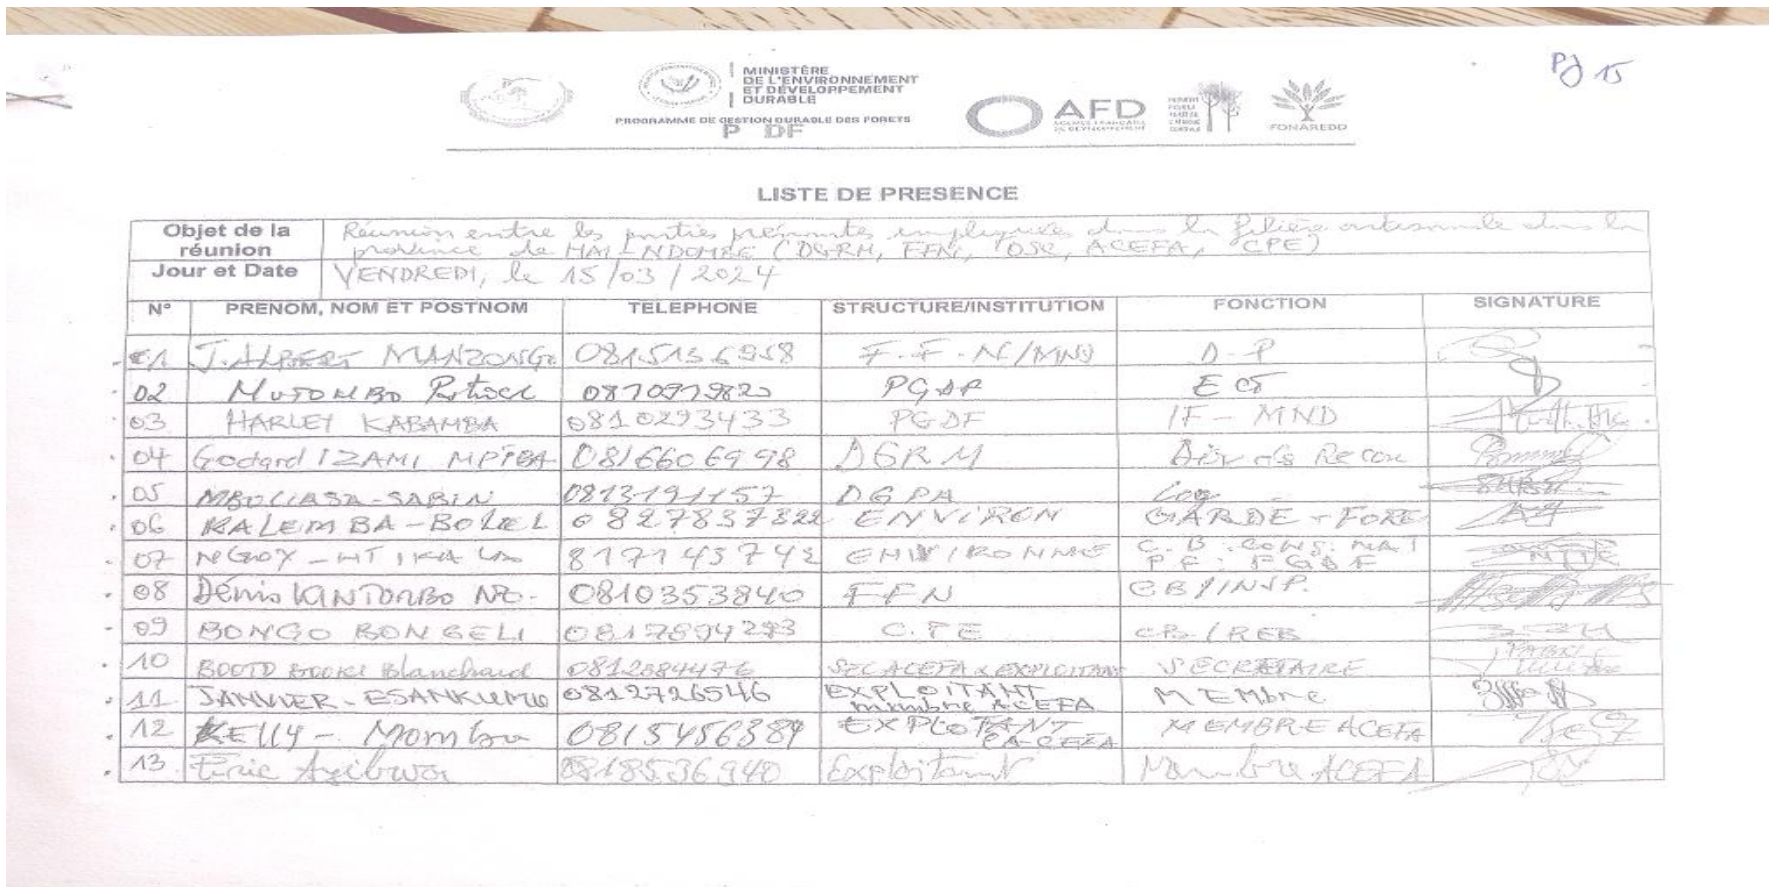 PJ 15
MINISTÈRE
DE L'ENVIRONNEMENT
ET DÉVELOPPEMENT
DURABLE
PROGRAMME DE GESTION DURABLE DES FORETS
P DF
AFD
FONAREDD
LISTE DE PRESENCE
Objet de la réunion Réunion entre les parties prenantes impliquées dans la filière artisanale dans la
province de MAI-NDOMBE (DGRM, FFN, OSC, ACEFA, CPE)
Jour et Date VENDREDI, le 15/03/2024
N° PRENOM, NOM ET POSTNOM TELEPHONE STRUCTURE/INSTITUTION FONCTION SIGNATURE
01 J. ALBERT MANZONGO 0815136958 F.F.N/MND D-P
02 MUTOMBO PGDF
03 HARLEY KABAMBA 0810293433 PGDF IF-MND
04 Godard IZAMI MPIBA 0816606998 DGRM
05 MBOLIASA-SABIN 0813191157 DGPA
06 KALEMBA-BOLIEL 0827837322 ENVIREN GARDE-FORE
07 NGOY- 817143742 ENVIRONNE
08 Dénis 0810353840 FFN CB/INSP.
09 BONGO BONGELI 0817894293 C.P.E CB/REB
10 Blanchard 0812884476 SEC ACEFA & EXPLOITANT SECRETAIRE
11 JANVIER-ESANKUMU 0812726546 EXPLOITANT membre ACEFA MEMbre
12 KELLY-Momba 0815456389 EXPLOTANT MEMBRE ACEFA
13 Eric 0818536940 Exploitant Membre ACEFA